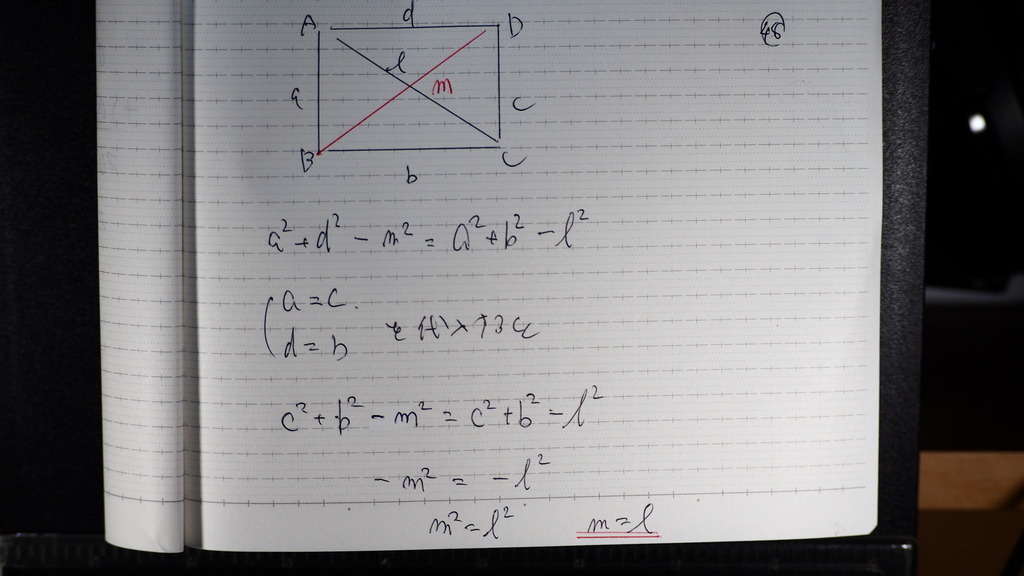 A d D
48
l
m
a
c
B C
b
a² + d² - m² = a² + b² - l²
a = c.
d = b を代入すると
c² + b² - m² = c² + b² - l²
- m² = - l²
m² = l² m = l